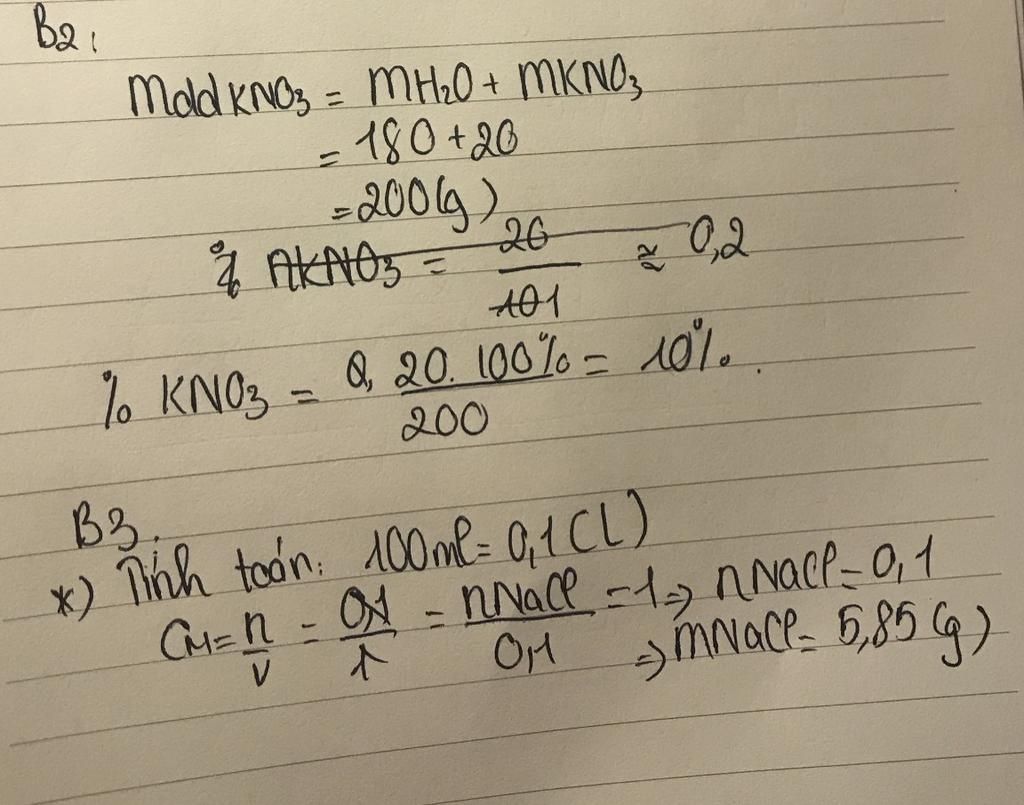 B2:
mdd KNO3 = mH2O + mKNO3
= 180 + 20
= 200 (g)
% nKNO3 = 20/101 ≈ 0,2
% KNO3 = 0, 20.100%/200 = 10%.
B3.
*) Tính toán: 100ml = 0,1 (L)
CM = n/V = 0,1/1 = nNaCl/0,1 = 1 => nNaCl = 0,1
=> mNaCl = 5,85 (g)